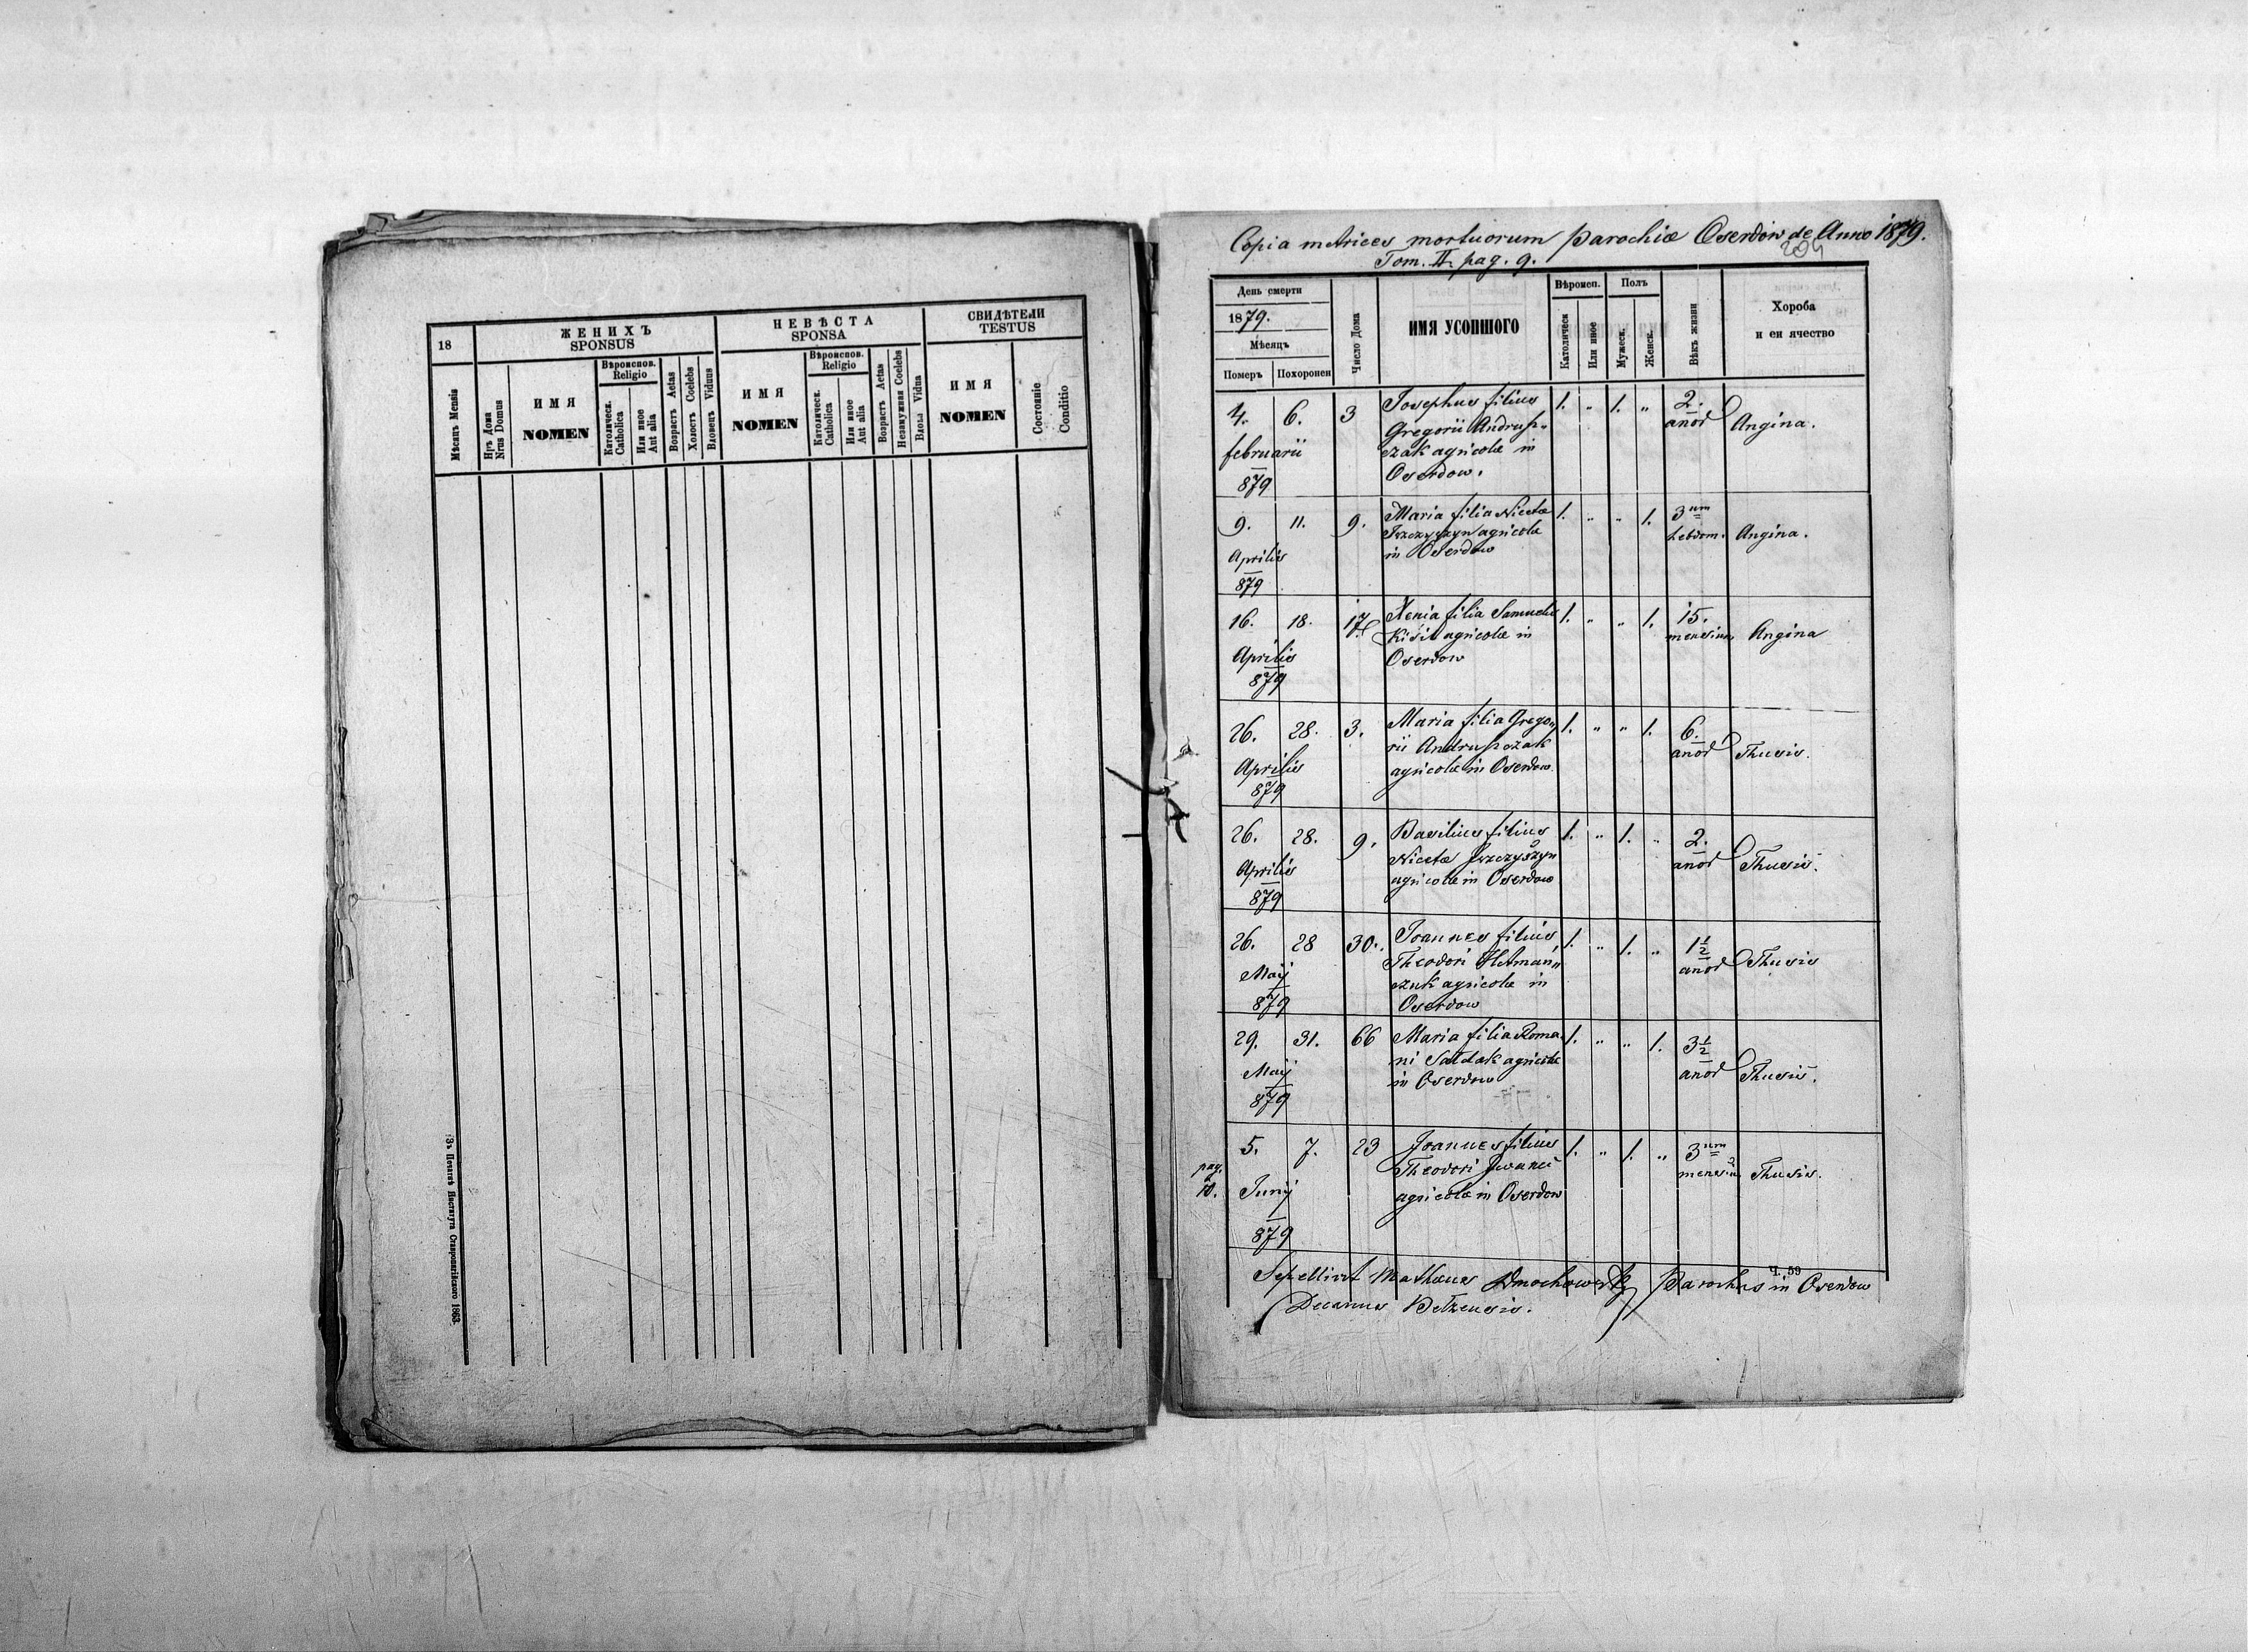 18
ЖЕНИХЪ
SPONSUS
НЕВѢСТА
SPONSA
СВИДѢТЕЛИ
TESTUS
Мѣсяцъ Mensis
Нръ Дома
Nrus Domus
ИМЯ
NOMEN
Вѣроиспов.
Religio
Католическ.
Catholica
Или иное
Aut alia
Возрастъ Aetas
Холостъ Coelebs
Вдовецъ Viduus
ИМЯ
NOMEN
Вѣроиспов.
Religio
Католическ.
Catholica
Или иное
Aut alia
Возрастъ Aetas
Незамужная Coelebs
Вдова Vidua
ИМЯ
NOMEN
Состояніе
Conditio
Зъ Печатнѣ Института Ставропигійского 1863.
Copia metrices mortuorum parochiæ Oserdow de Anno 1879.
Tom. II. pag. 9.
204
День смерти
1879.
Мѣсяцъ
Померъ
Похоронен
Число Дома
ИМЯ УСОПШОГО
Вѣроисп.
Католическ
Или иное
Полъ
Мужеск.
Женск.
Вѣкъ жизни
Хороба
и еи ячество
4. 6. 3 Josephus filius 1. " 1. " 2.
Gregorii Andrusz- anor Angina.
februarii czak agricolæ in
879 Oserdow.
9. 11. 9. Maria filia Nicetæ 1. " " 1. 3um
agricolæ hebdom. Angina.
Aprilis in Oserdow
879
16. 18. 17 Xenia filia Samuelis 1. " " 1. 15.
agricolæ in mensium Angina
Aprilis Oserdow
879
26. 28. 3. Maria filia Grego„ 1. " " 1. 6.
rii Andruszczak anor Thusis.
Aprilis agricolæ in Oserdow
879
26. 28. 9. Basilius filius 1. " 1. " 2.
Nicetæ anor Thusis.
Aprilis agricolæ in Oserdow
879
26. 28 30. Joannes filius 1. " 1. " 1½
Theodori Hetman„ anor Thusis
Maij czuk agricolæ in
879 Oserdow
29. 31. 66 Maria filia Roma- 1. " " 1. 3½
ni agricolæ anor Thusis.
Maij in Oserdow
879
pag.
10.
5. 7. 23 Joannes filius 1. " 1. " 3um
Theodori mensium Thusis.
Junij agricolæ in Oserdow
879
Ч. 59
Sepelivit Mathæus Dmochowski Parochus in Oserdow
Decanus Belzensis.